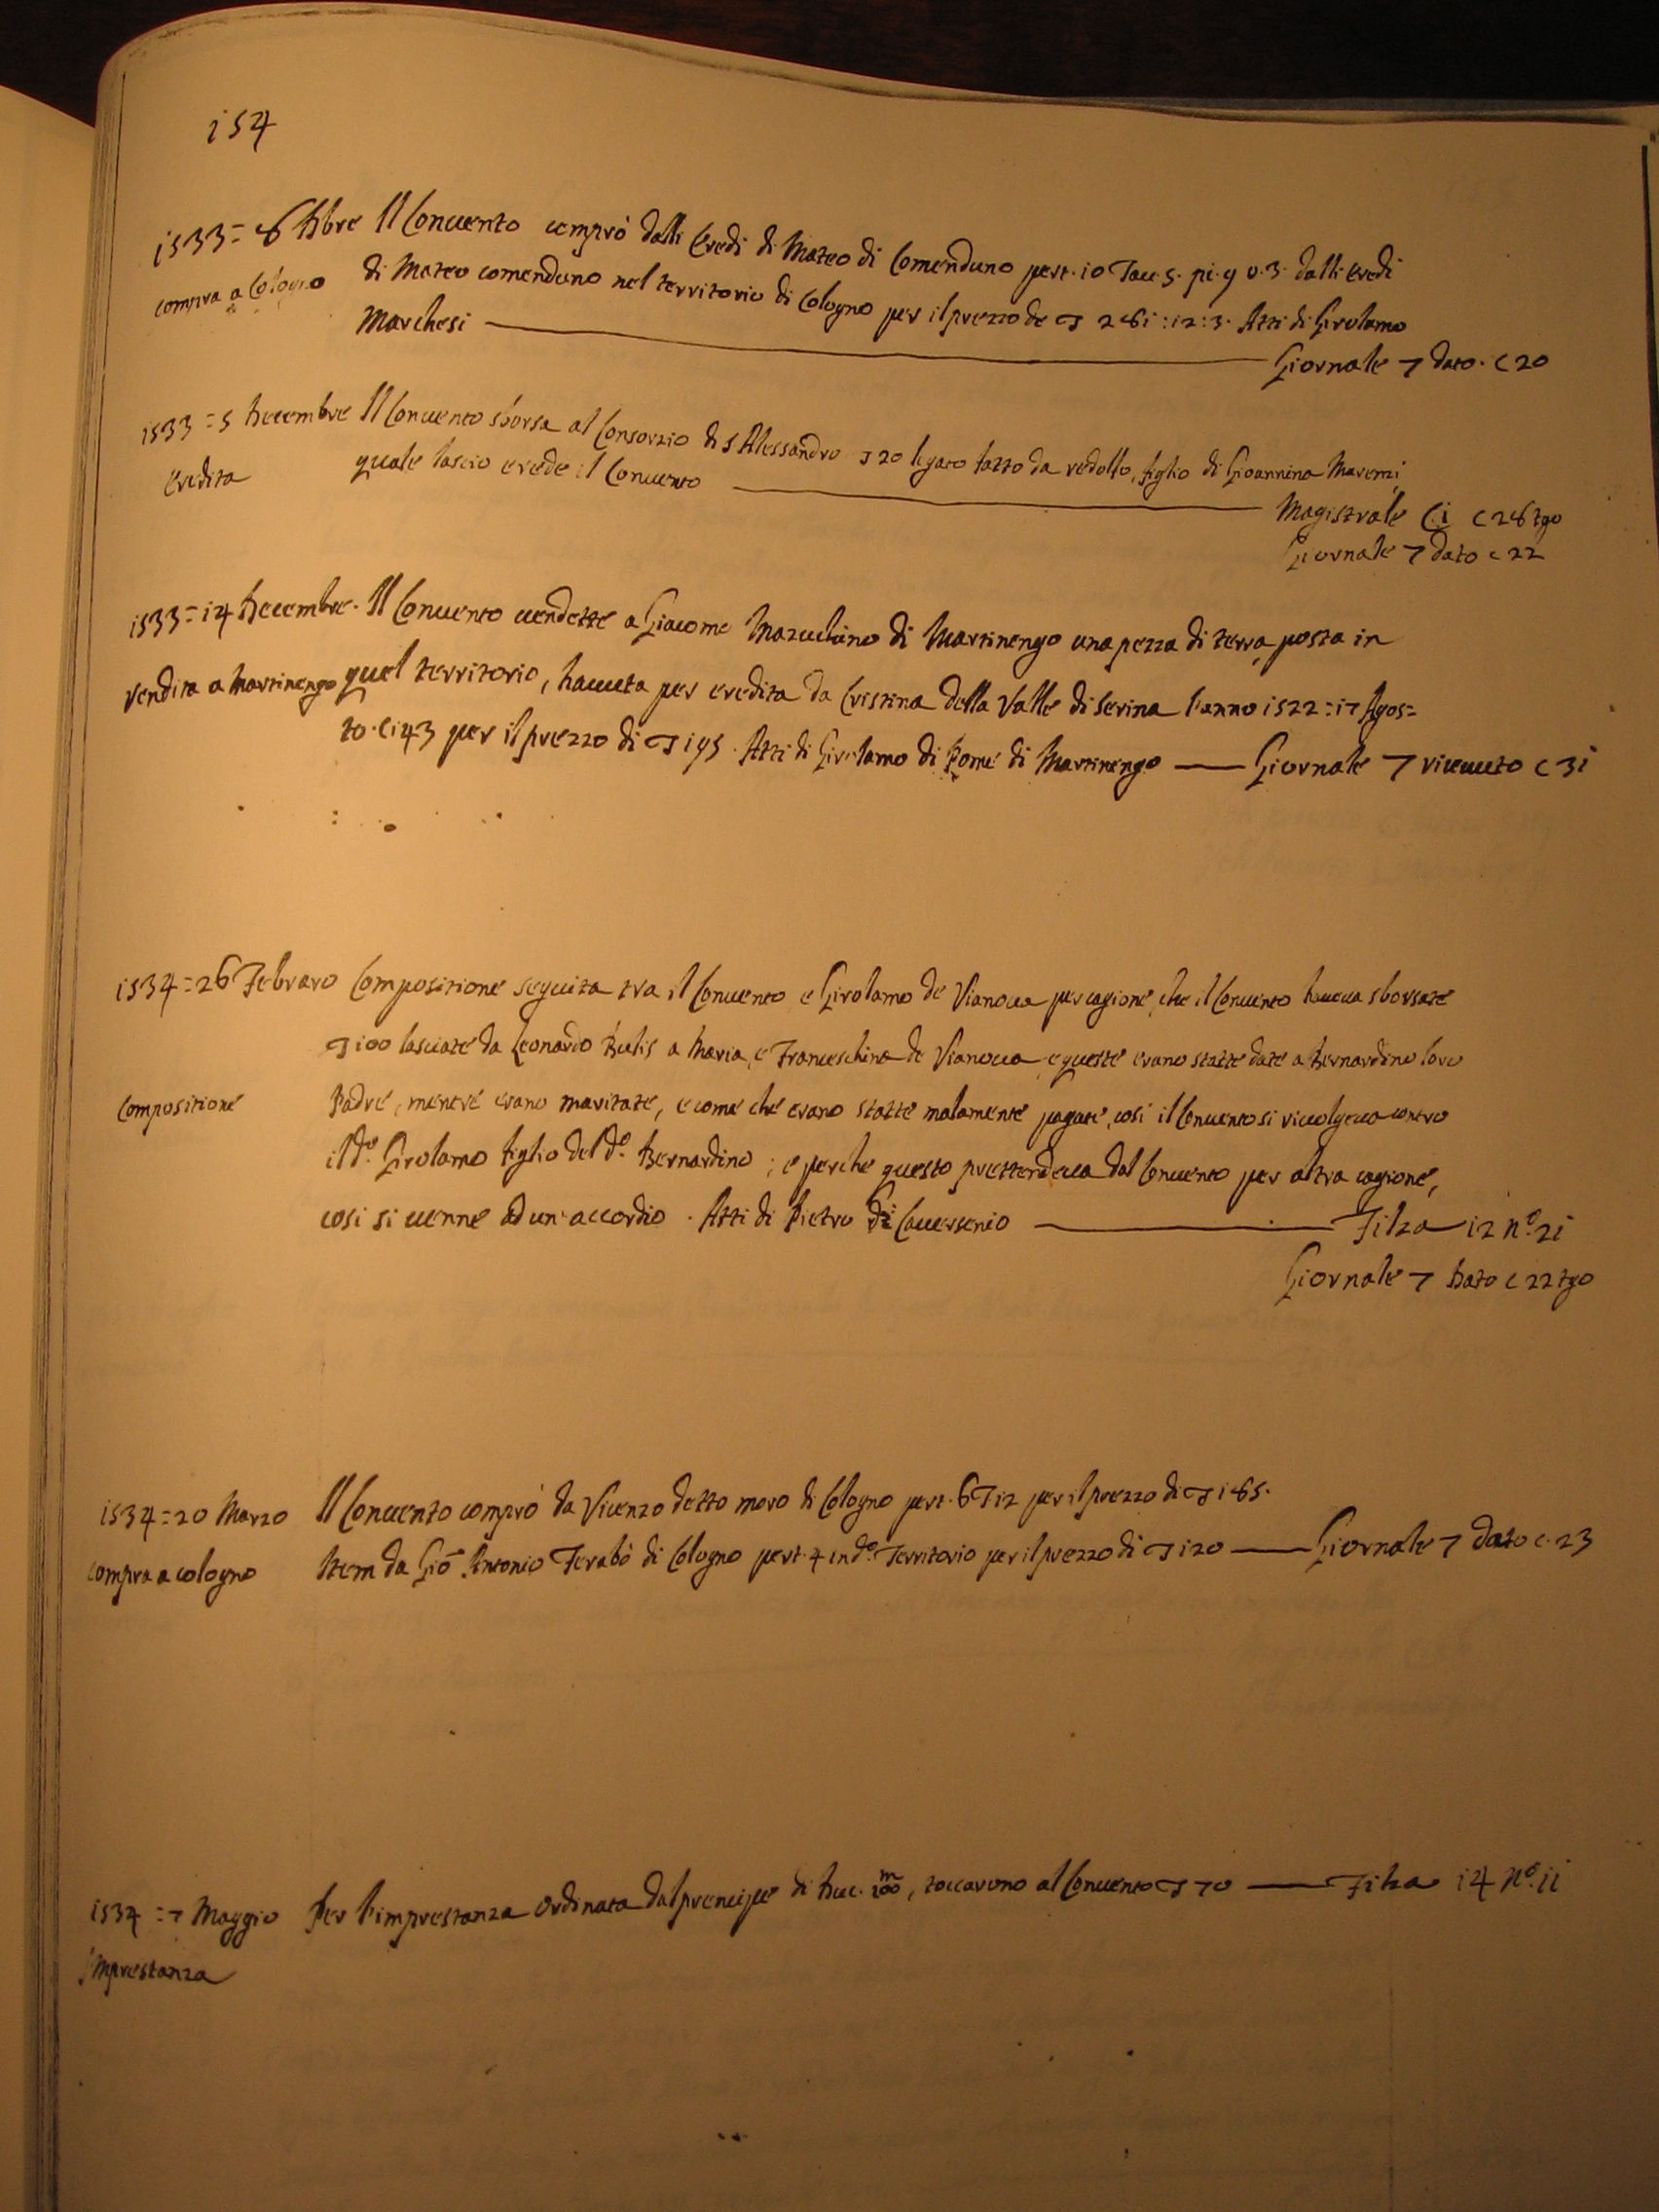 154
1533 = 8 Xbre Il Convento comprò dalli Eredi di Mateo di Comenduno pert. 10 Tau. 5. pi. 9 o. 3. dalli Eredi
compra a Cologno di Mateo comenduno nel territorio di Cologno per il prezzo de 281:12:3. Atti di Girolamo
Marchesi Giornale 7 dato. c 20
1533 = 5 Decembre Il Convento sborsa al Consorzio di S Alessandro 20 legato fatto da redolfo, figlio di Gioannina
Eredita quale lascio erede il Convento
Magistrale C.i c 28 tgo
Giornale 7 dato c 22
1533 = 14 Decembre. Il Convento vendette a Giacomo di Martinengo una pezza di terra posta in
Vendita a Martinengo quel territorio, havuta per eredita da Cristina della Valle di Serina l'anno 1522 = 17 Agos=
to. c 143 per il prezzo di 195. Atti di Girolamo di Rome di Martinengo Giornale 7 ricevuto c 31
1534 = 26 Febraro Compositione seguita tra il Convento e Girolamo de Vianova per cagione, che il Convento haveva sborsate
100 lasciate da Leonardo a Maria, e Franceschina de Vianova e queste erano statte date a Bernardino loro
Compositione Padre, mentre erano maritate, e come che erano statte malamente pagate, così il Convento si rivolgeva contro
il d.o Girolamo figlio del d.o Bernardino; e perche questo prettendeva dal Convento per altra cagione,
così si venne ad un'accordio. Atti di Pietro di Caversenio Filza 12 n.o 21
Giornale 7 Dato c 22 tgo
1534 = 20 Marzo Il Convento comprò da Vicenzo detto moro di Cologno pert. 6 T 12 per il prezzo di 185.
compra a cologno Item da Giō Antonio Ferabò di Cologno pert. 4 in d.o Territorio per il prezzo di 120 Giornale 7 dato c. 23
1534 = 7 Maggio Per l'imprestanza ordinata dal prencipe di Duc. 100 m, toccarono al Convento 70 Filza 14 N.o 11
Imprestanza